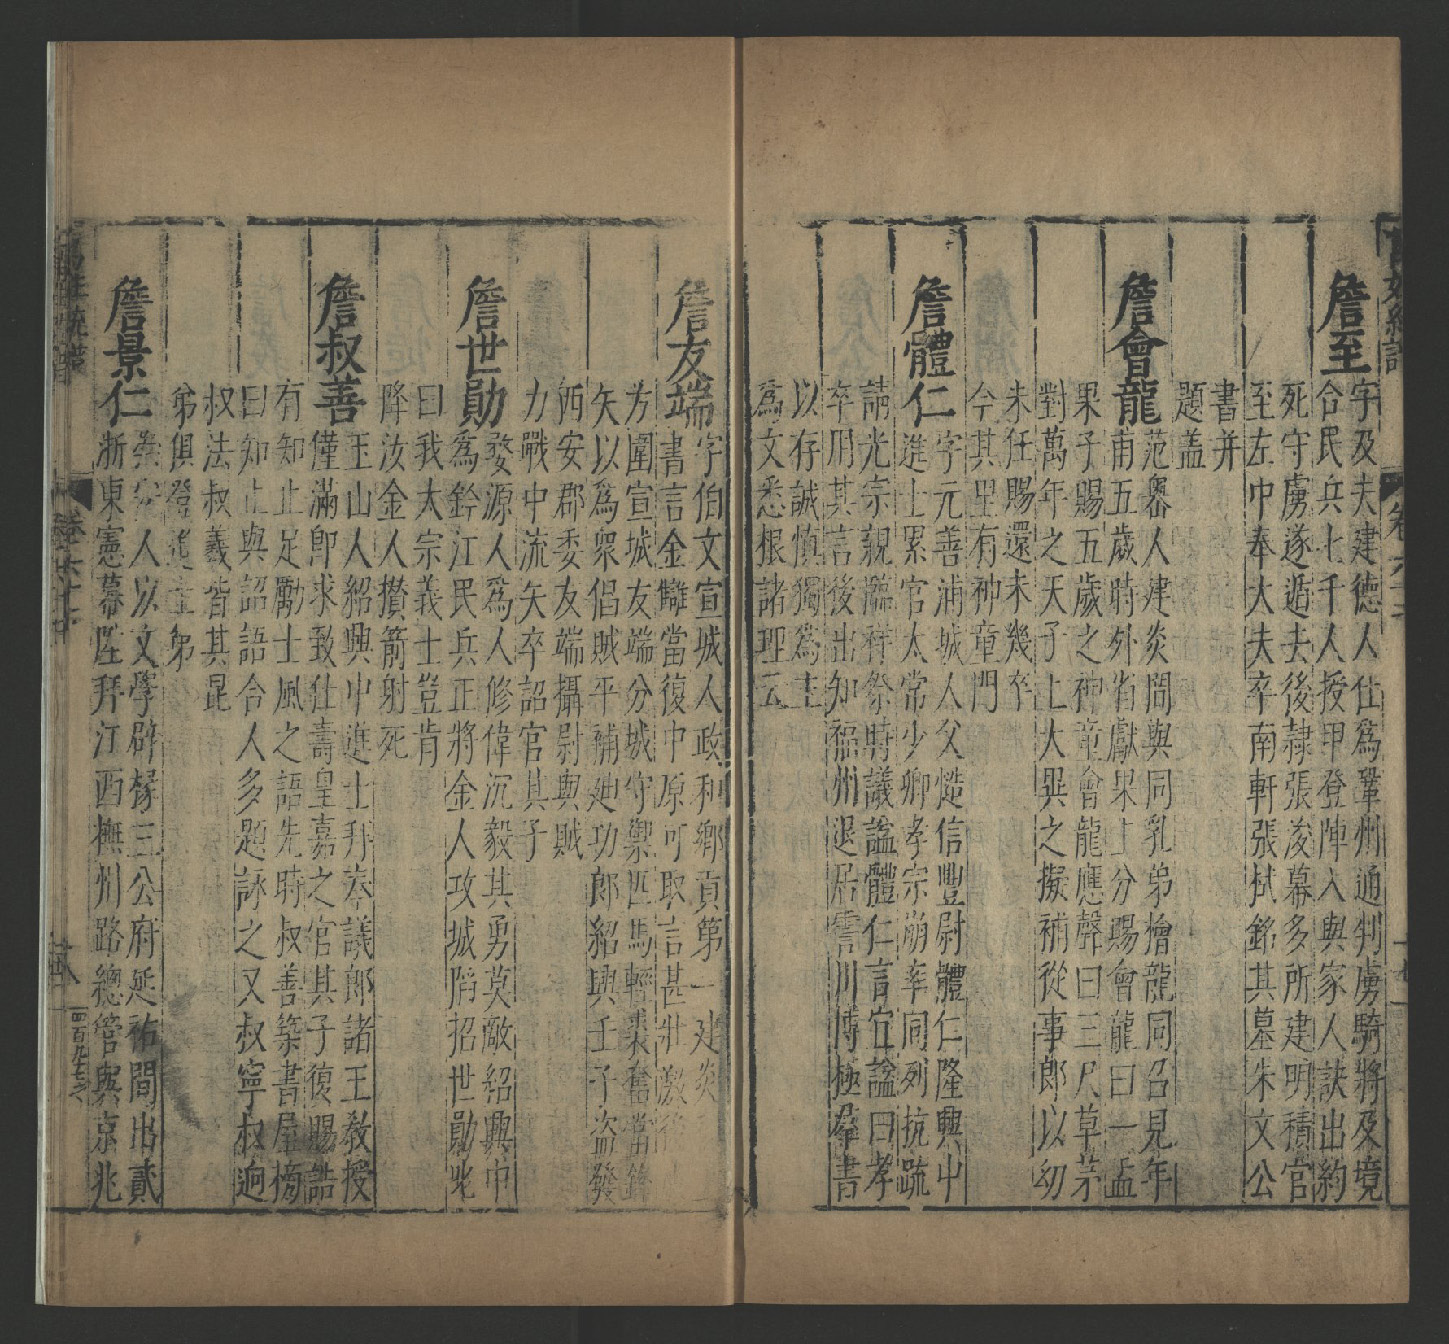 詹至
字及夫建德人仕爲鞏州通判虜騎將及境
合民兵七千人授甲登陣入與家人訣出約
死守虜遂遁去後隷張浚幕多所建明積官
至左中奉大夫卒南軒張栻銘其墓朱文公
書并
題盖
詹會龍
范嶴人建炎間與同乳弟檜龍同召見年
甫五歲時外省獻果上分賜會龍曰一盃
果子賜五歲之神童會龍應聲曰三尺草茅
對萬年之天子上大異之擬補從事郎以幼
未任賜還未幾卒
今其里有神童門
詹體仁
字元善浦城人父慥信豐尉體仁隆興中
進士累官太常少卿孝宗崩率同列抗疏
請光宗親臨祥祭時議諡體仁言宜諡曰孝
卒用其言後出知福州退居霅川博極羣書
以存誠慎獨爲主
爲文悉根諸理云
詹友端
字伯文宣城人政和鄉貢第一建炎
書言金讎當復中原可取言甚壯激
方圍宣城友端分城守禦匹馬輕裘奮當鋒
矢以爲衆倡賊平補廸功郎紹興壬子盗發
西安郡委友端攝尉與賊
力戰中流矢卒詔官其子
詹世勛
婺源人爲人修偉沉毅其勇莫敵紹興中
爲鈐江民兵正將金人攻城陷招世勛
曰我大宗義士豈肯
降汝金人攅箭射死
詹叔善
玉山人紹興中進士拜奉議郎諸王教授
僅滿卽求致仕壽皇嘉之官其子復賜誥
有知止足勵士風之語先時叔善築書屋搒
曰知止與詔語合人多題詠之又叔寧叔逈
叔法叔羲皆其昆
弟俱登進士第
詹景仁
崇安人以文學辟椽三公府延祐間出貳
浙東憲幕陞拜江西撫州路總管與京兆